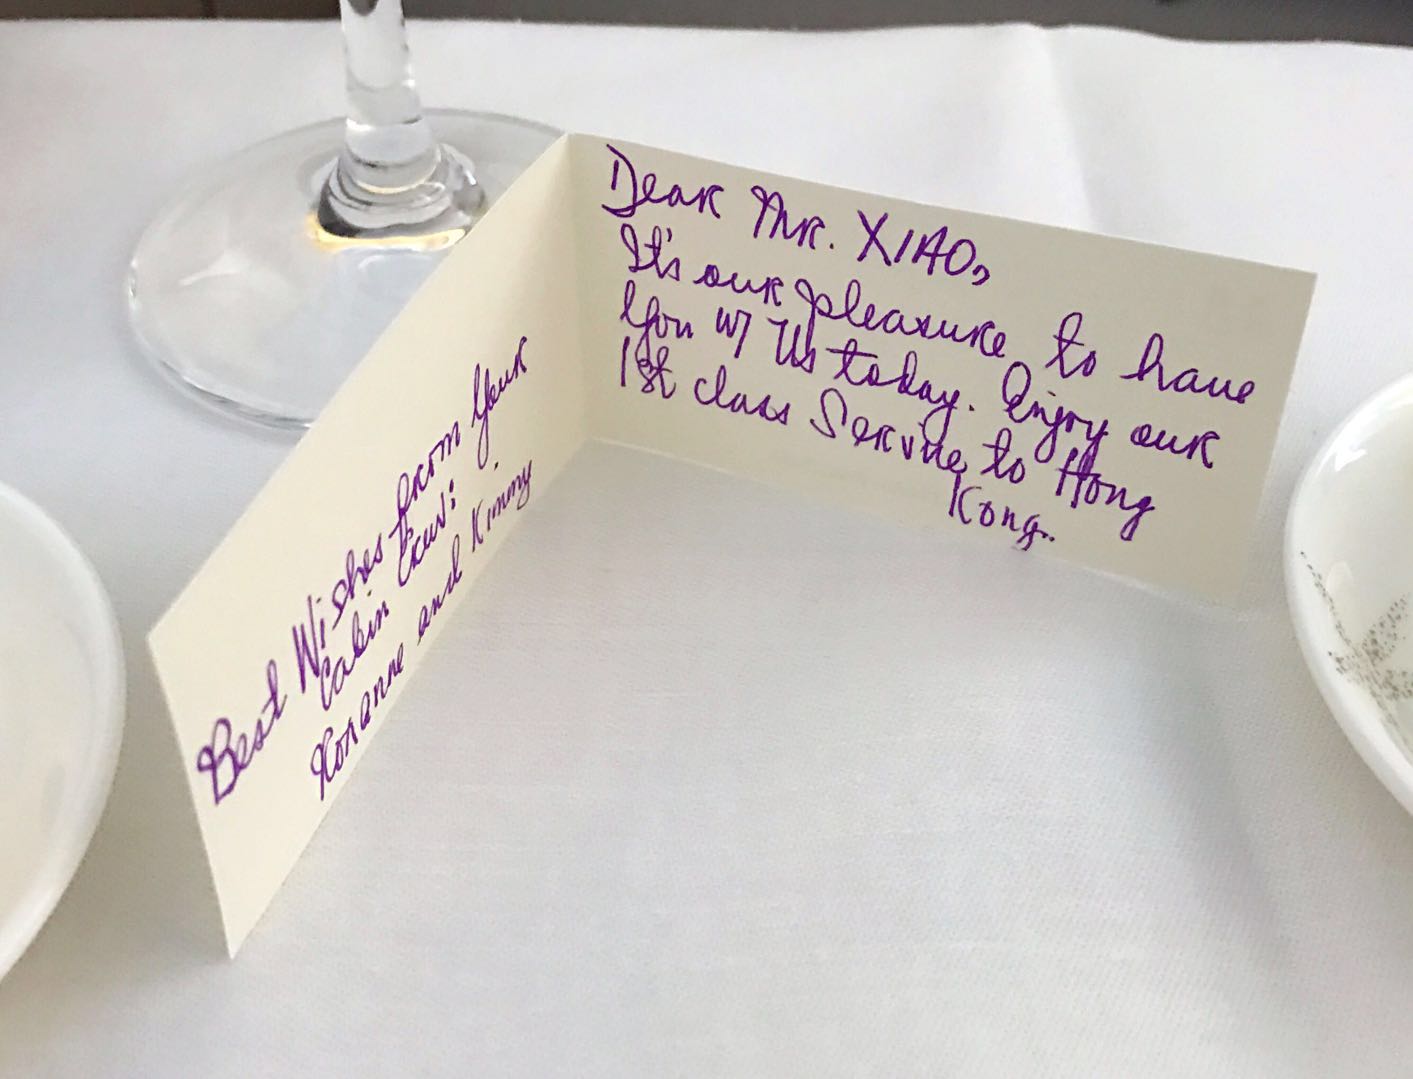 Dear Mr. XIAO,
It's our pleasure to have
You w/ Us today. Enjoy our
1st class Service to Hong
Kong.
Best Wishes from Your
Cabin Crew:
Roxanne and Kimmy